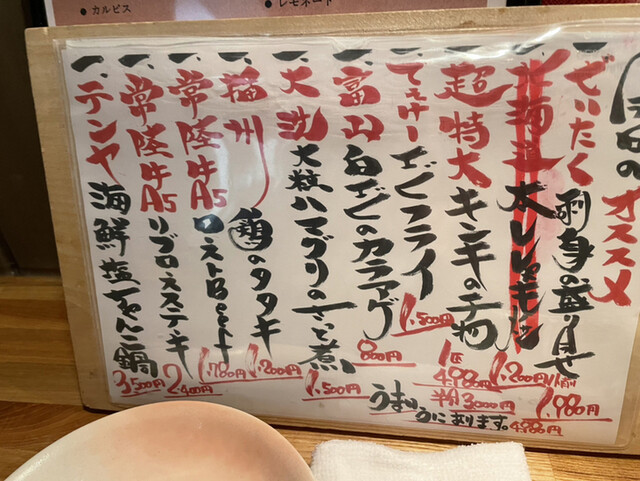 ● カルピス
● レモネード
オススメ
一、ぜいたく 刺身の盛り合せ 1人前 1,980円
一、北海道 太いししゃも 1,200円
一、超特大 キンキの干物 1匹 4,980円 半身 3,000円
一、でっけー エビフライ 1,500円
一、富山 白エビのカラアゲ 800円
一、大洗 大粒ハマグリのさっと煮 1,500円
一、播州 鶏のタタキ 1,200円
一、常陸牛A5 ローストBeef 1,780円
一、常陸牛A5 リブロースステーキ 2,400円
一、テンヤ 海鮮塩ちゃんこ鍋 3,500円
うまい うにあります。4,980円